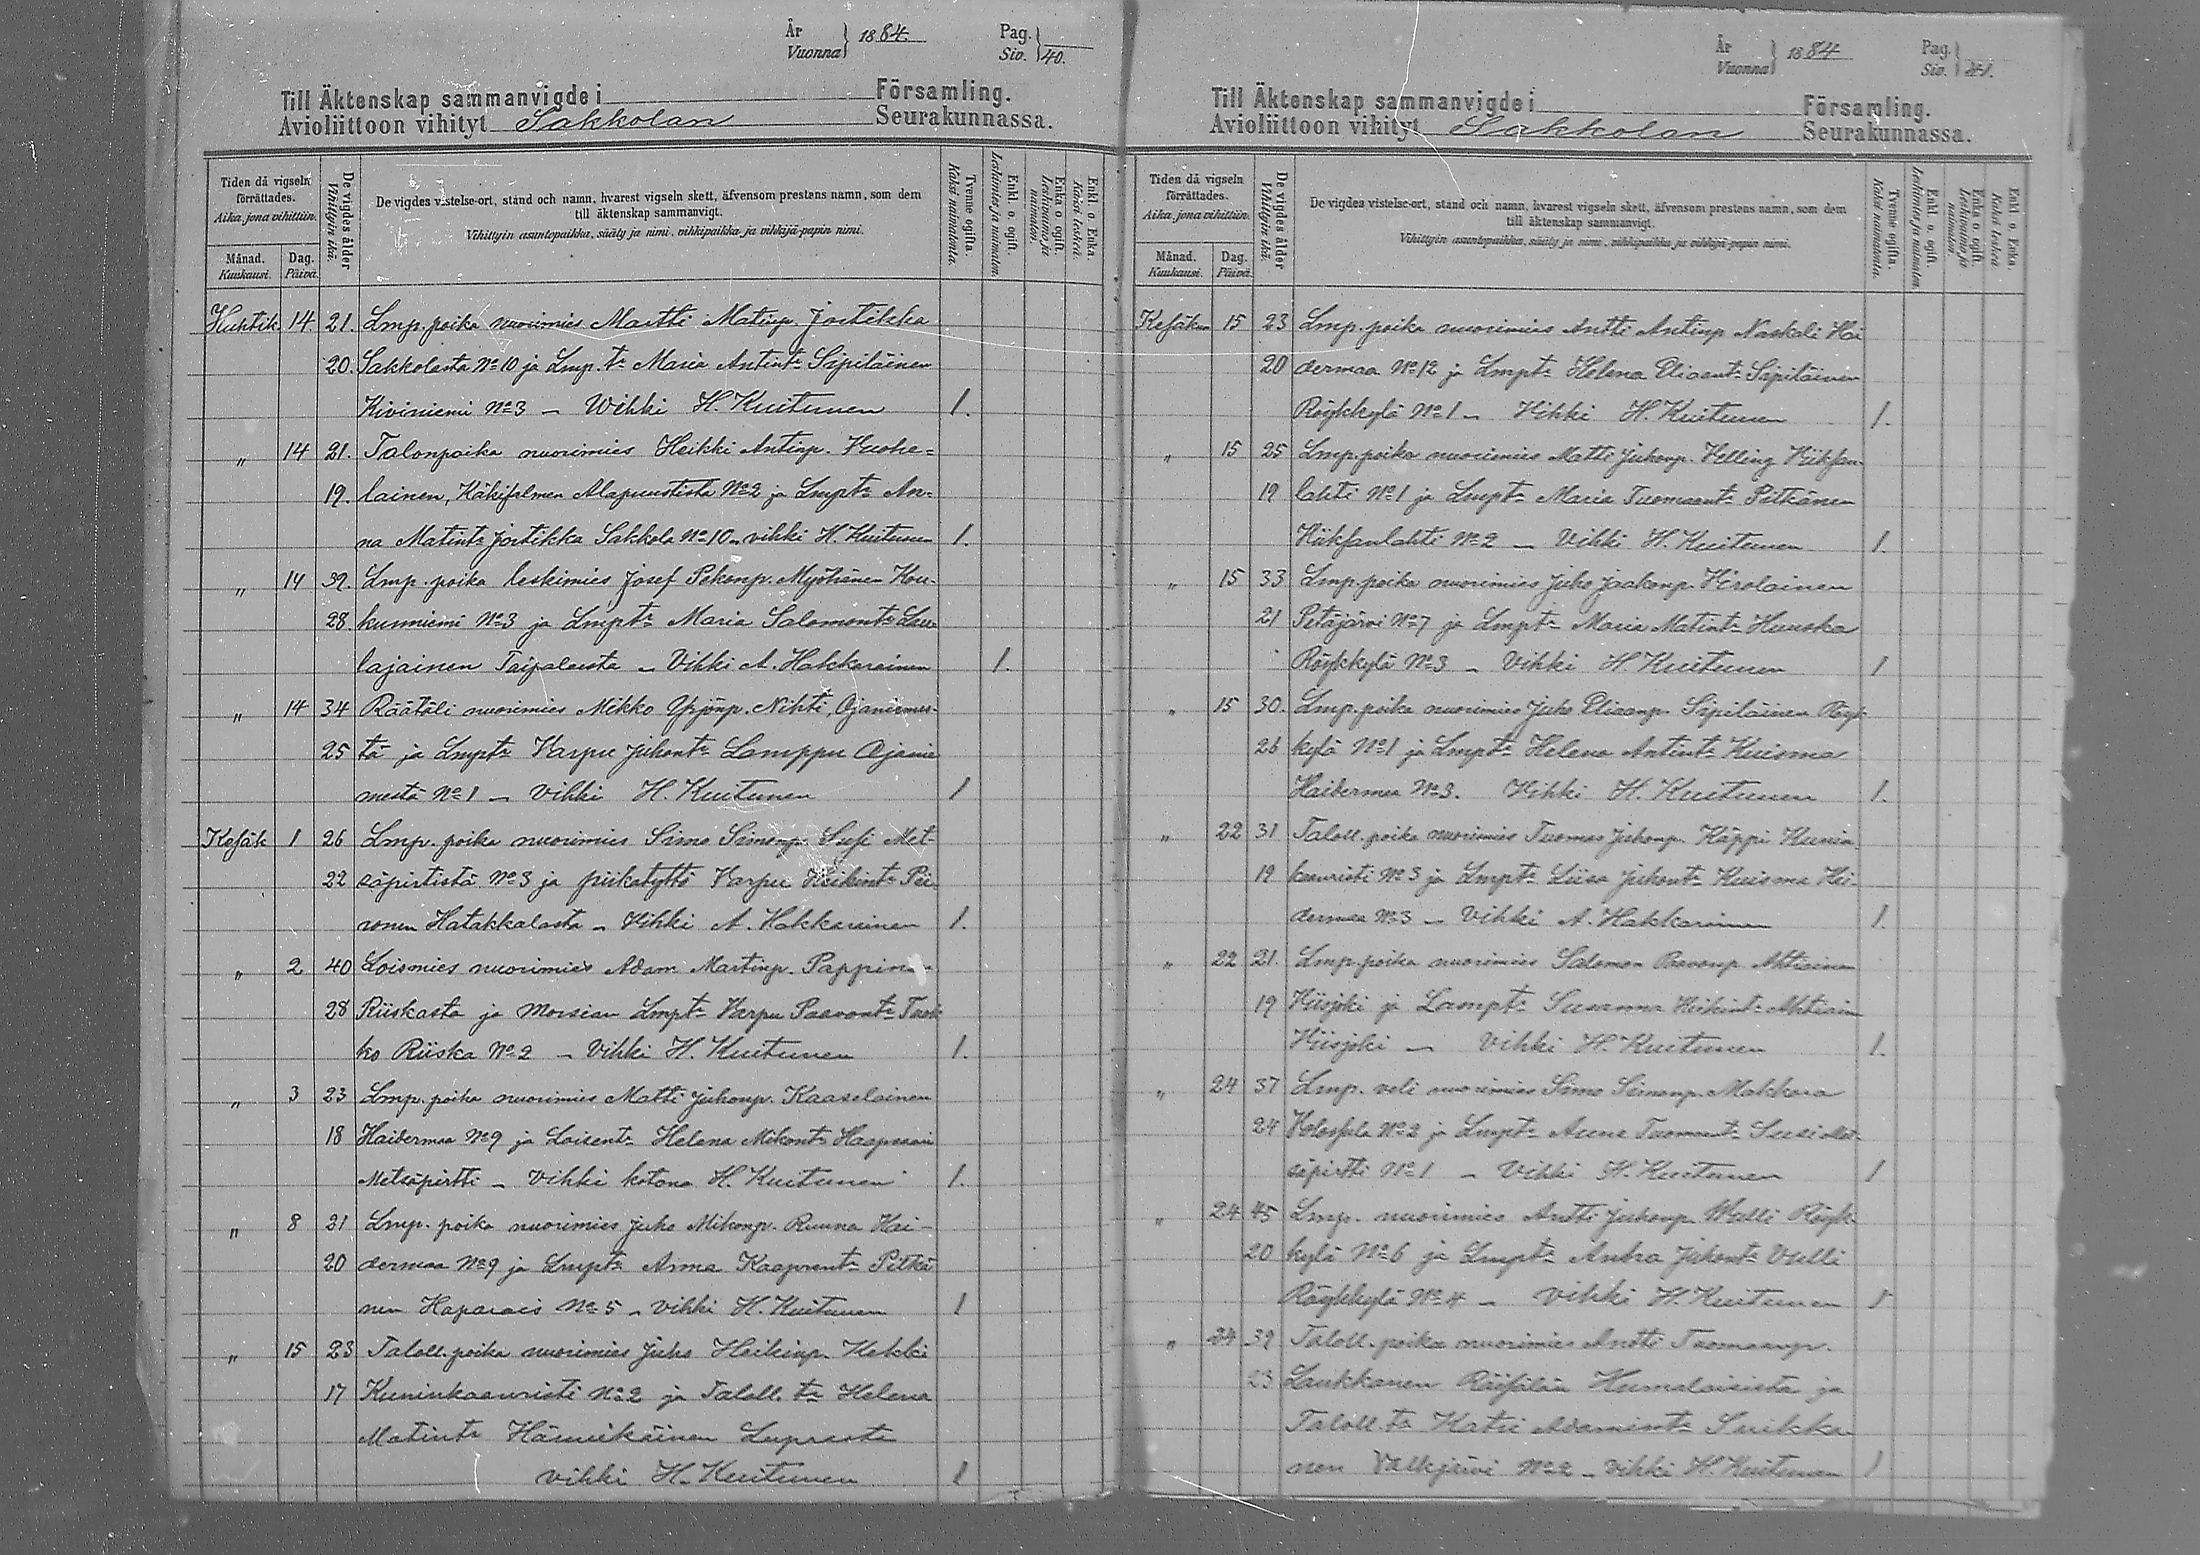 År
Vuonna } 1884.
Pag.
Siv. } 40.
Till Äktenskap sammanvigde i Församling.
Avioliittoon vihityt Sakkolan Seurakunnassa.
Tiden då vigseln förrättades.
Aika, jona vihittiin.
Månad.
Kuukausi.
Dag.
Päivä.
De vigdes ålder
Vihittyin ikä.
De vigdes vistelse-ort, stånd och namn, hvarest vigseln skett, äfvensom prestens namn, som dem
till äktenskap sammanvigt.
Vihittyin asuntopaikka, sääty ja nimi, vihkipaikka ja vihkijä-papin nimi.
Tvenne ogifta.
Kaksi naimatonta.
Enkl. o. ogift.
Leskimies ja naimaton.
Enka o. ogift.
Leskivaimo ja naimaton.
Enkl. o. Enka
Kaksi leskeä.
Huhtik. 14. 21. Lmp. poika nuorimies Martti Matinp. Jortikka
20. Sakkolasta No 10 ja Lmp. tr Maria Antintr Sipiläinen
Kiviniemi No 3 – Wihki H. Kuitunen 1.
" 14 21. Talonpoika nuorimies Heikki Antinp. Vuohe=
19. lainen, Käkisalmen Alapuustista No 2 ja Lmptr An-
na Matintr Jortikka Sakkola No 10 – vihki H. Kuitunen 1.
" 14 39. Lmp. poika leskimies Josef Pekanp. Myöhänen Kou-
28. kunniemi No 3 ja Lmptr Maria Salomontr Lau
lajainen Taipaleesta – Vihki A. Hakkarainen 1.
" 14 34 Räätäli nuorimies Mikko Yrjönp. Nihti, Ojaniemes-
25 tä ja Lmptr Varpu Juhontr Lamppu Ojanie
mestä No 1 – Vihki H. Kuitunen 1
Kesäk 1 26 Lmp. poika nuorimies Simo Simonp. Susi Met-
22 säpirtistä No 3 ja piikatyttö Varpu Heikintr Pii-
ronen Hatakkalasta – Vihki A. Hakkarainen 1.
" 2 40 Loismies nuorimies Adam Martinp. Pappinen
28 Riiskasta ja Morsian Lmptr Varpu Paavontr Tuok
ko Riiska No 2 – Vihki H. Kuitunen 1.
" 3 23 Lmp. poika nuorimies Matti Juhonp. Kaaselainen
18 Haidermaa No 9 ja Loisentr Helena Mikontr Haapsaari
Metsäpirtti – Vihki kotona H. Kuitunen 1.
" 8 21 Lmp. poika nuorimies Juho Mikonp. Ruuna Hai-
20 dermaa No 9 ja Lmptr Anna Kaaprontr Pitkä
nen Haparais No 5 – vihki H. Kuitunen 1
" 15 23 Taloll. poika nuorimies Juho Heikinp. Kekki
17 Kuninkaanristi No 2 ja Taloll. tr Helena
Matintr Hännikäinen
vihki H. Kuitunen 1
År
Vuonna } 1884
Pag.
Siv. } 41.
Till Äktenskap sammanvigde i Församling.
Avioliittoon vihityt Sakkolan Seurakunnassa.
Tiden då vigseln förrättades.
Aika, jona vihittiin.
Månad.
Kuukausi.
Dag.
Päivä.
De vigdes ålder
Vihittyin ikä.
De vigdes vistelse-ort, stånd och namn, hvarest vigseln skett, äfvensom prestens namn, som dem
till äktenskap sammanvigt.
Vihittyin asuntopaikka, sääty ja nimi, vihkipaikka ja vihkijä-papin nimi.
Tvenne ogifta.
Kaksi naimatonta.
Enkl. o. ogift.
Leskimies ja naimaton.
Enka o. ogift.
Leskivaimo ja naimaton.
Enkl. o. Enka.
Kaksi leskeä
Kesäkuu 15 23 Lmp. poika nuorimies Antti Antinp Naskali Hai
20 dermaa No 12 ja Lmptr Helena Eliaantr Sipiläinen
Röykkylä No 1 – Vihki H. Kuitunen 1.
" 15 25 Lmp. poika nuorimies Matti Juhonp. Helling Viiksan-
19 lahti No 1 ja Lmptr Maria Tuomaantr Pitkänen
Viiksanlahti No 2 – Vihki H. Kuitunen 1.
" 15 33 Lmp. poika nuorimies Juho Jaakonp. Virolainen
21 Petäjärvi No 7 ja Lmptr Maria Matintr Huuska
Röykkylä No 3 – Vihki H. Kuitunen 1
" 15 30. Lmp. poika nuorimies Juho Eliaanp. Sipiläinen Röyk-
26 kylä No 1 ja Lmptr Helena Antintr Kuisma
Haidermaa No 3. Vihki H. Kuitunen 1.
" 22 31 Taloll. poika nuorimies Tuomas Juhonp. Käppi Kunin
19 kaanristi No 3 ja Lmptr Liisa Juhontr Kuisma Hai-
dermaa No 3 – Vihki A. Hakkarainen 1.
" 22 21. Lmp. poika nuorimies Salomon Paavonp. Ahtiainen
19 Viisjoki ja Lamptr Susanna Heikintr Ahtiain
Viisjoki – Vihki H. Kuitunen 1.
" 24 37 Lmp. veli nuorimies Simo Simonp. Makkara
24 No 2 ja Lmptr Anna Tuomaantr Susi Met-
säpirtti No 1 – Vihki H. Kuitunen 1
" 24 45 Lmp. nuorimies Antti Juhonp. Wulli Röyk-
20 kylä No 6 ja Lmptr Juhontr Vulli
Röykkylä No 4 – Vihki H. Kuitunen 1
" 24 39 Taloll. poika nuorimies Antti Tuomaanp.
23 Laukkanen Räisälän Humalaisista ja
Taloll. tr Katri Adamintr Suikka-
nen Valkjärvi No 2 – Vihki H. Kuitunen 1